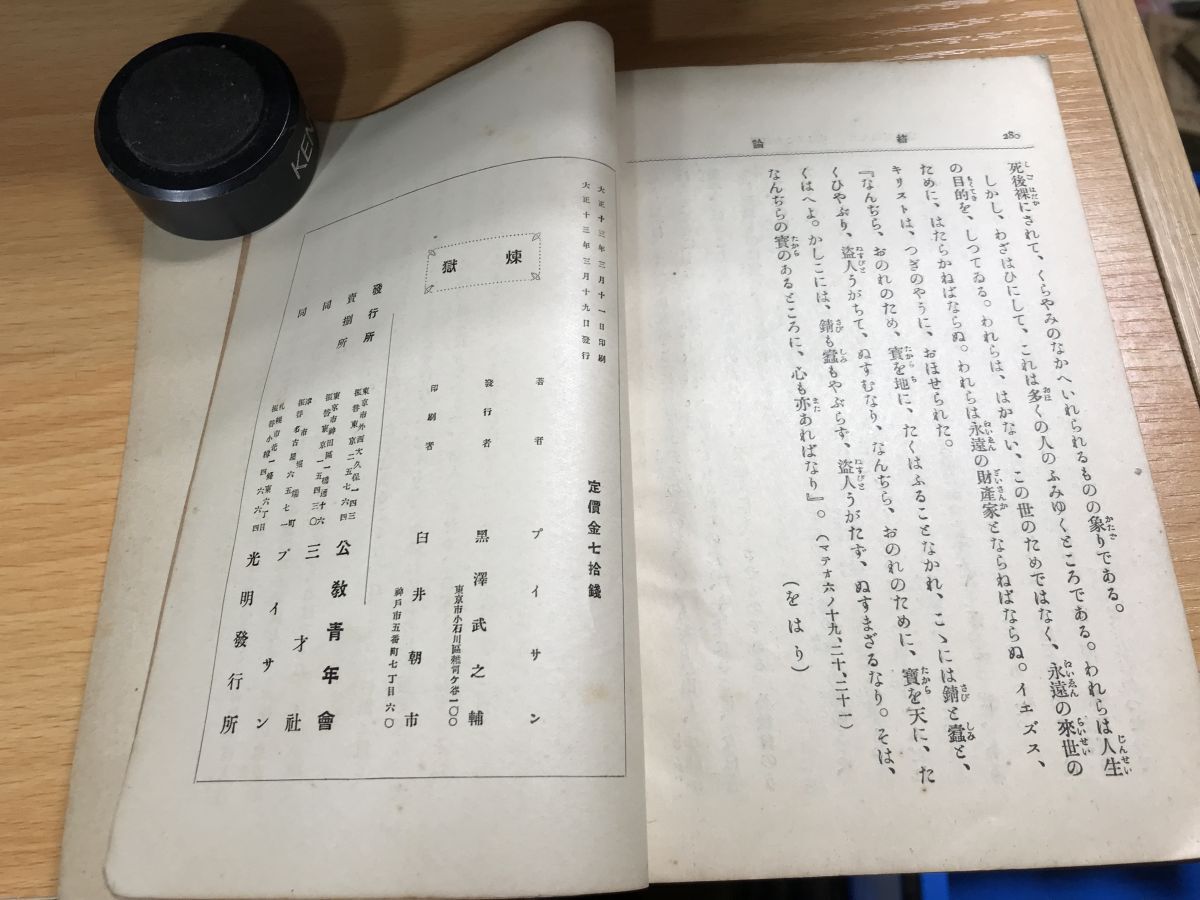 280
結論
死後裸にされて、くらやみのなかへいれられるものの象りである。
しかし、わざはひにして、これは多くの人のふみゆくところである。われらは人生
の目的を、しつてゐる。われらは、はかない、この世のためではなく、永遠の來世の
ために、はたらかねばならぬ。われらは永遠の財產家とならねばならぬ。イエズス、
キリストは、つぎのやうに、おほせられた。
『なんぢら、おのれのため、寶を地に、たくはふることなかれ、こゝには錆と蠹と、
くひやぶり、盜人うがちて、ぬすむなり、なんぢら、おのれのために、寶を天に、た
くはへよ。かしこには、錆も蠹もやぶらず、盜人うがたず、ぬすまざるなり。そは、
なんぢらの寶のあるところに、心も亦あればなり』。(マテオ六ノ十九、二十、二十一)
(をはり)
定價金七拾錢
大正十三年三月十一日印刷
大正十三年三月十九日發行
煉獄
著者 プイサン
發行者 黑澤武之輔
東京市小石川區雜司ケ谷一〇〇
印刷者 臼井朝市
神戶市五番町七丁目六〇
發行所 東京市外西大久保一四三 公敎靑年會
振替東京二五七六四
賣捌所 東京市神田區一橋通十六 三才社
振替東京一五四三〇
同 津市堀端町 プイサン
振替名古屋六五七一
同 札幌市北一條東六丁目 光明發行所
振替小樽四六六四
KEN